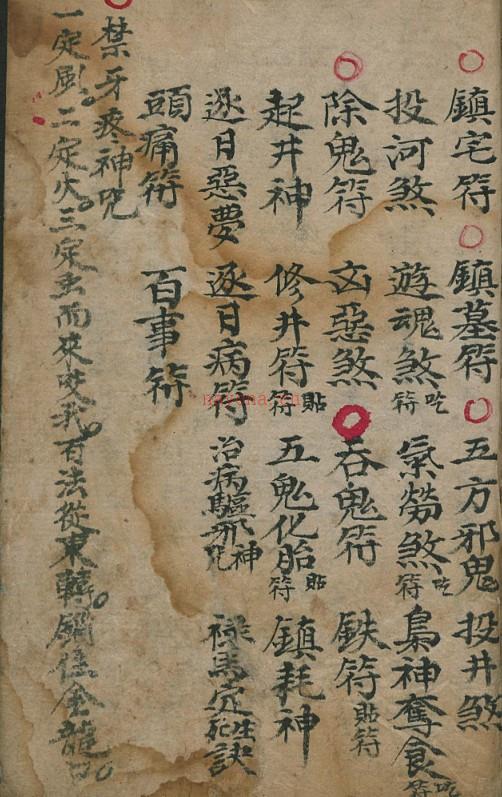 鎮宅符 鎮墓符 五方邪鬼 投井煞
投河煞 遊魂煞吃符 氣勞煞吃符 梟神奪食吃符
除鬼符 凶惡煞 吞鬼符 鉄符貼符
起井神 修井符貼符 五鬼化胎貼符 鎮耗神
逐日惡夢 逐日病符 治病驅邪神咒 祿馬定生死訣
頭痛符 百事符
禁牙疼神咒
一定風二定火三定虫而來咬我有法從東轉鎖住金龍口